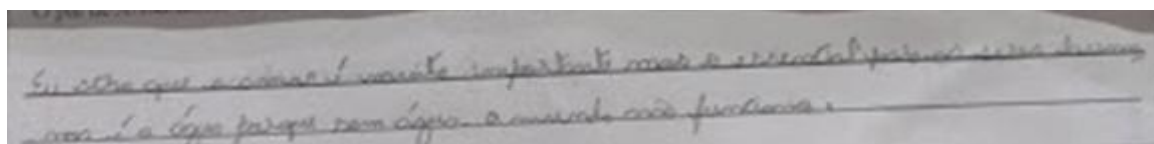 Eu acho que o amor é muito importante mas o essencial para os seres huma
nos é a água porque sem água o mundo não funciona.